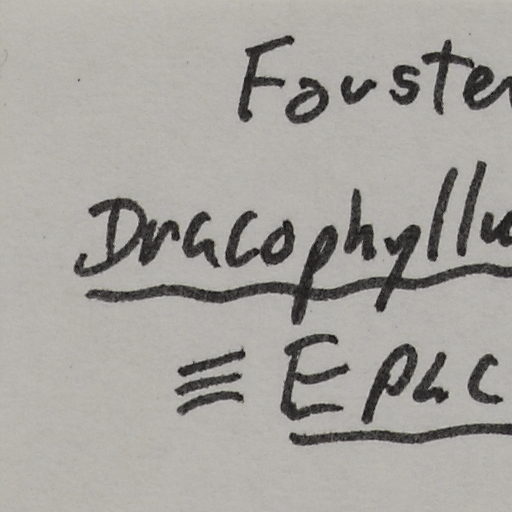 Fouste
Dracophyllu
≡ Epac